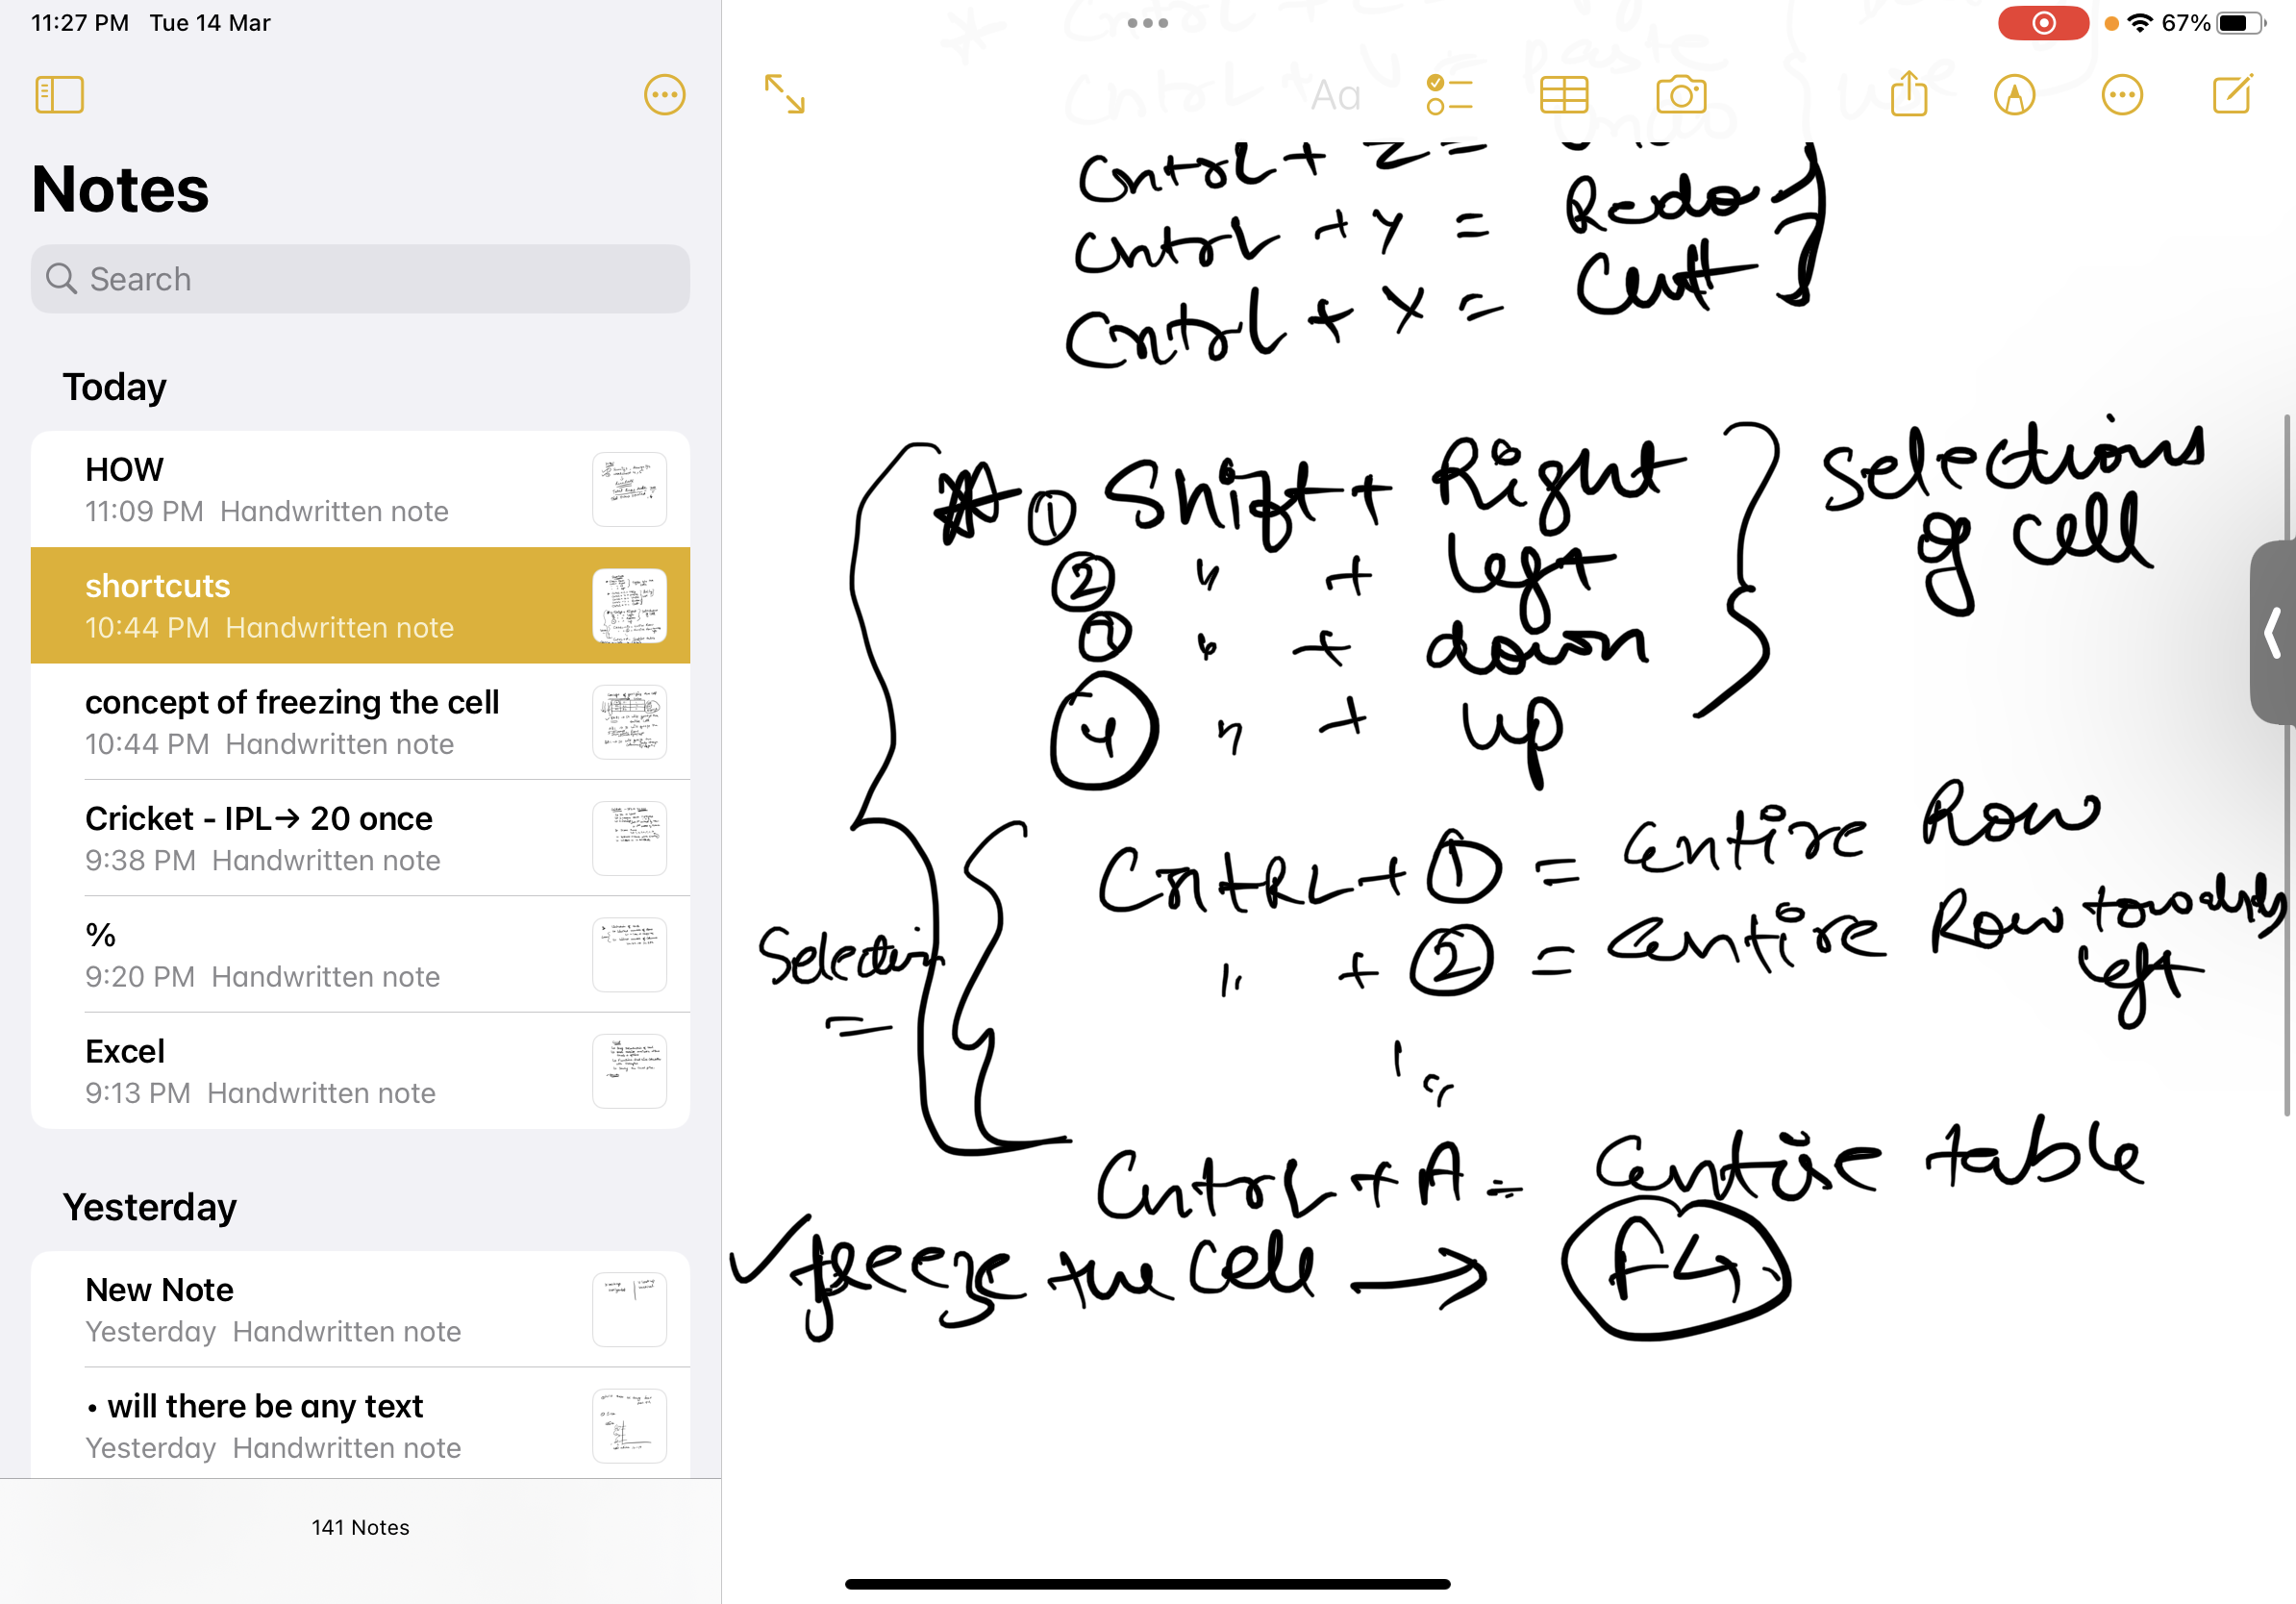 11:27 PM Tue 14 Mar
67%
Notes
Search
Today
HOW
11:09 PM Handwritten note
shortcuts
10:44 PM Handwritten note
concept of freezing the cell
10:44 PM Handwritten note
Cricket - IPL→ 20 once
9:38 PM Handwritten note
%
9:20 PM Handwritten note
Excel
9:13 PM Handwritten note
Yesterday
New Note
Yesterday Handwritten note
• will there be any text
Yesterday Handwritten note
141 Notes
Aa
Cntrl + V = paste
Cntrl + Z =
Cntrl + Y = Redo
Cntrl + X = Cutt
① Shift + Right
② " + left
" + down
④ " + up
selections
of cell
Selection
=
CntRL + ① = entire Row
" + ② = entire Row towards
left
Cntrl + A = entire table
✓ freeze the cell → F4